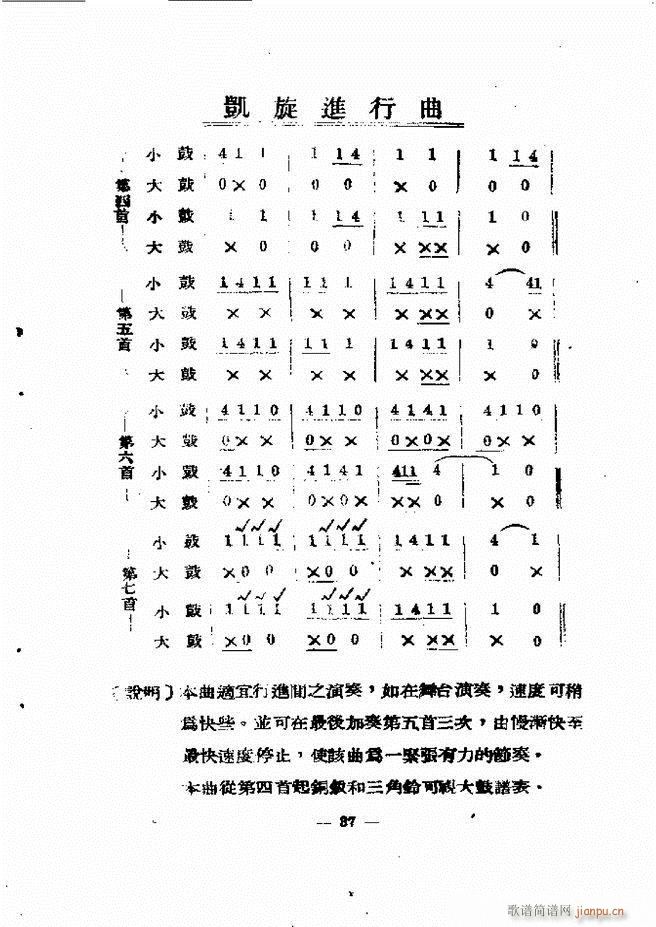 凱旋進行曲
第四首
小鼓 4 1 1 | 1 14 | 1 1 | 1 14
大鼓 0×0 | 0 0 | × 0 | 0 0
小鼓 1 1 | 1 14 | 1 11 | 1 0
大鼓 × 0 | 0 0 | × ×× | × 0
第五首
小鼓 1411 | 11 1 | 1411 | 4 41
大鼓 × × | × × | × ×× | 0 ×
小鼓 1411 | 11 1 | 1411 | 1 0
大鼓 × × | × × | × ×× | × 0
第六首
小鼓 4110 | 4110 | 4141 | 4110
大鼓 0×× | 0×× | 0×0× | 0××
小鼓 4110 | 4141 | 411 4 | 1 0
大鼓 0×× | 0×0× | × × | × 0
第七首
小鼓 1111 | 1111 | 1411 | 4 1
大鼓 ×00 | ×00 | × ×× | 0 ×
小鼓 1111 | 1111 | 1411 | 1 0
大鼓 ×00 | ×00 | × ×× | × 0
〔說明〕本曲適宜行進間之演奏，如在舞台演奏，速度可稍
爲快些。並可在最後加奏第五首三次，由慢漸快至
最快速度停止，使該曲爲一緊張有力的節奏。
本曲從第四首起銅鈸和三角鈴可視大鼓譜表。
— 37 —
歌谱简谱网 jianpu.cn